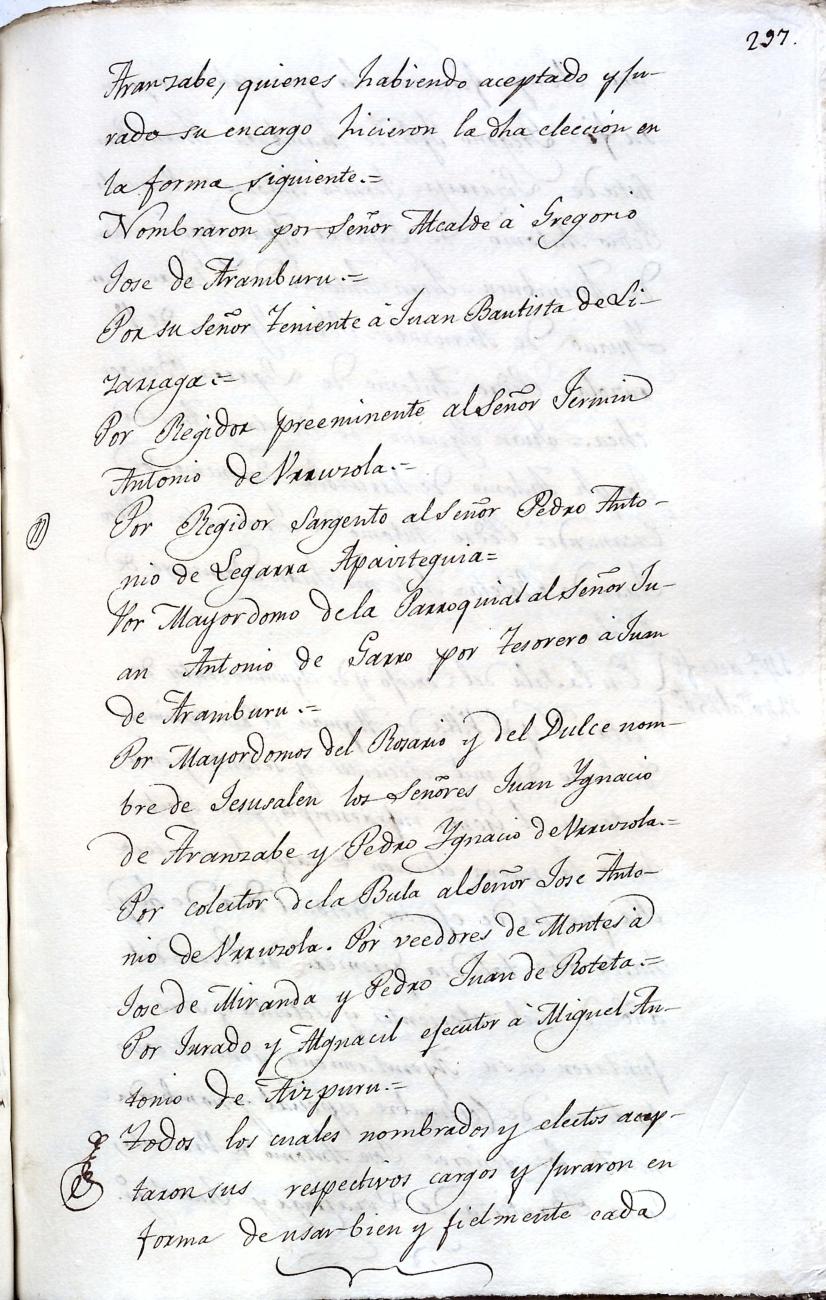 297.
Aranzabe, quienes habiendo aceptado y ju-
rado su encargo hicieron la dha eleccion en
la forma siguiente.=
Nombraron por señor Alcalde à Gregorio
Jose de Aramburu.=
Por su señor Teniente à Juan Bautista de Li-
zarraga.=
Por Regidor preeminente al señor Fermin
Antonio de Urruzola.=
Por Regidor Sargento al señor Pedro Anto-
nio de Legarra Apaizteguia=
Por Mayordomo de la Parroquial al señor Ju-
an Antonio de Garro por Tesorero à Juan
de Aramburu.=
Por Mayordomos del Rosario y del Dulce nom-
bre de Jesusalen los señores Juan Ygnacio
de Aranzabe y Pedro Ygnacio de Urruzola.=
Por colector de la Bula al señor Jose Anto-
nio de Urruzola. Por veedores de Montes à
Jose de Miranda y Pedro Juan de Roteta.=
Por Jurado y Alguacil ejecutor à Miguel An-
tonio de Aizpuru.=
Todos los cuales nombrados y electos acep-
taron sus respectivos cargos y juraron en
forma de usar bien y fielmente cada